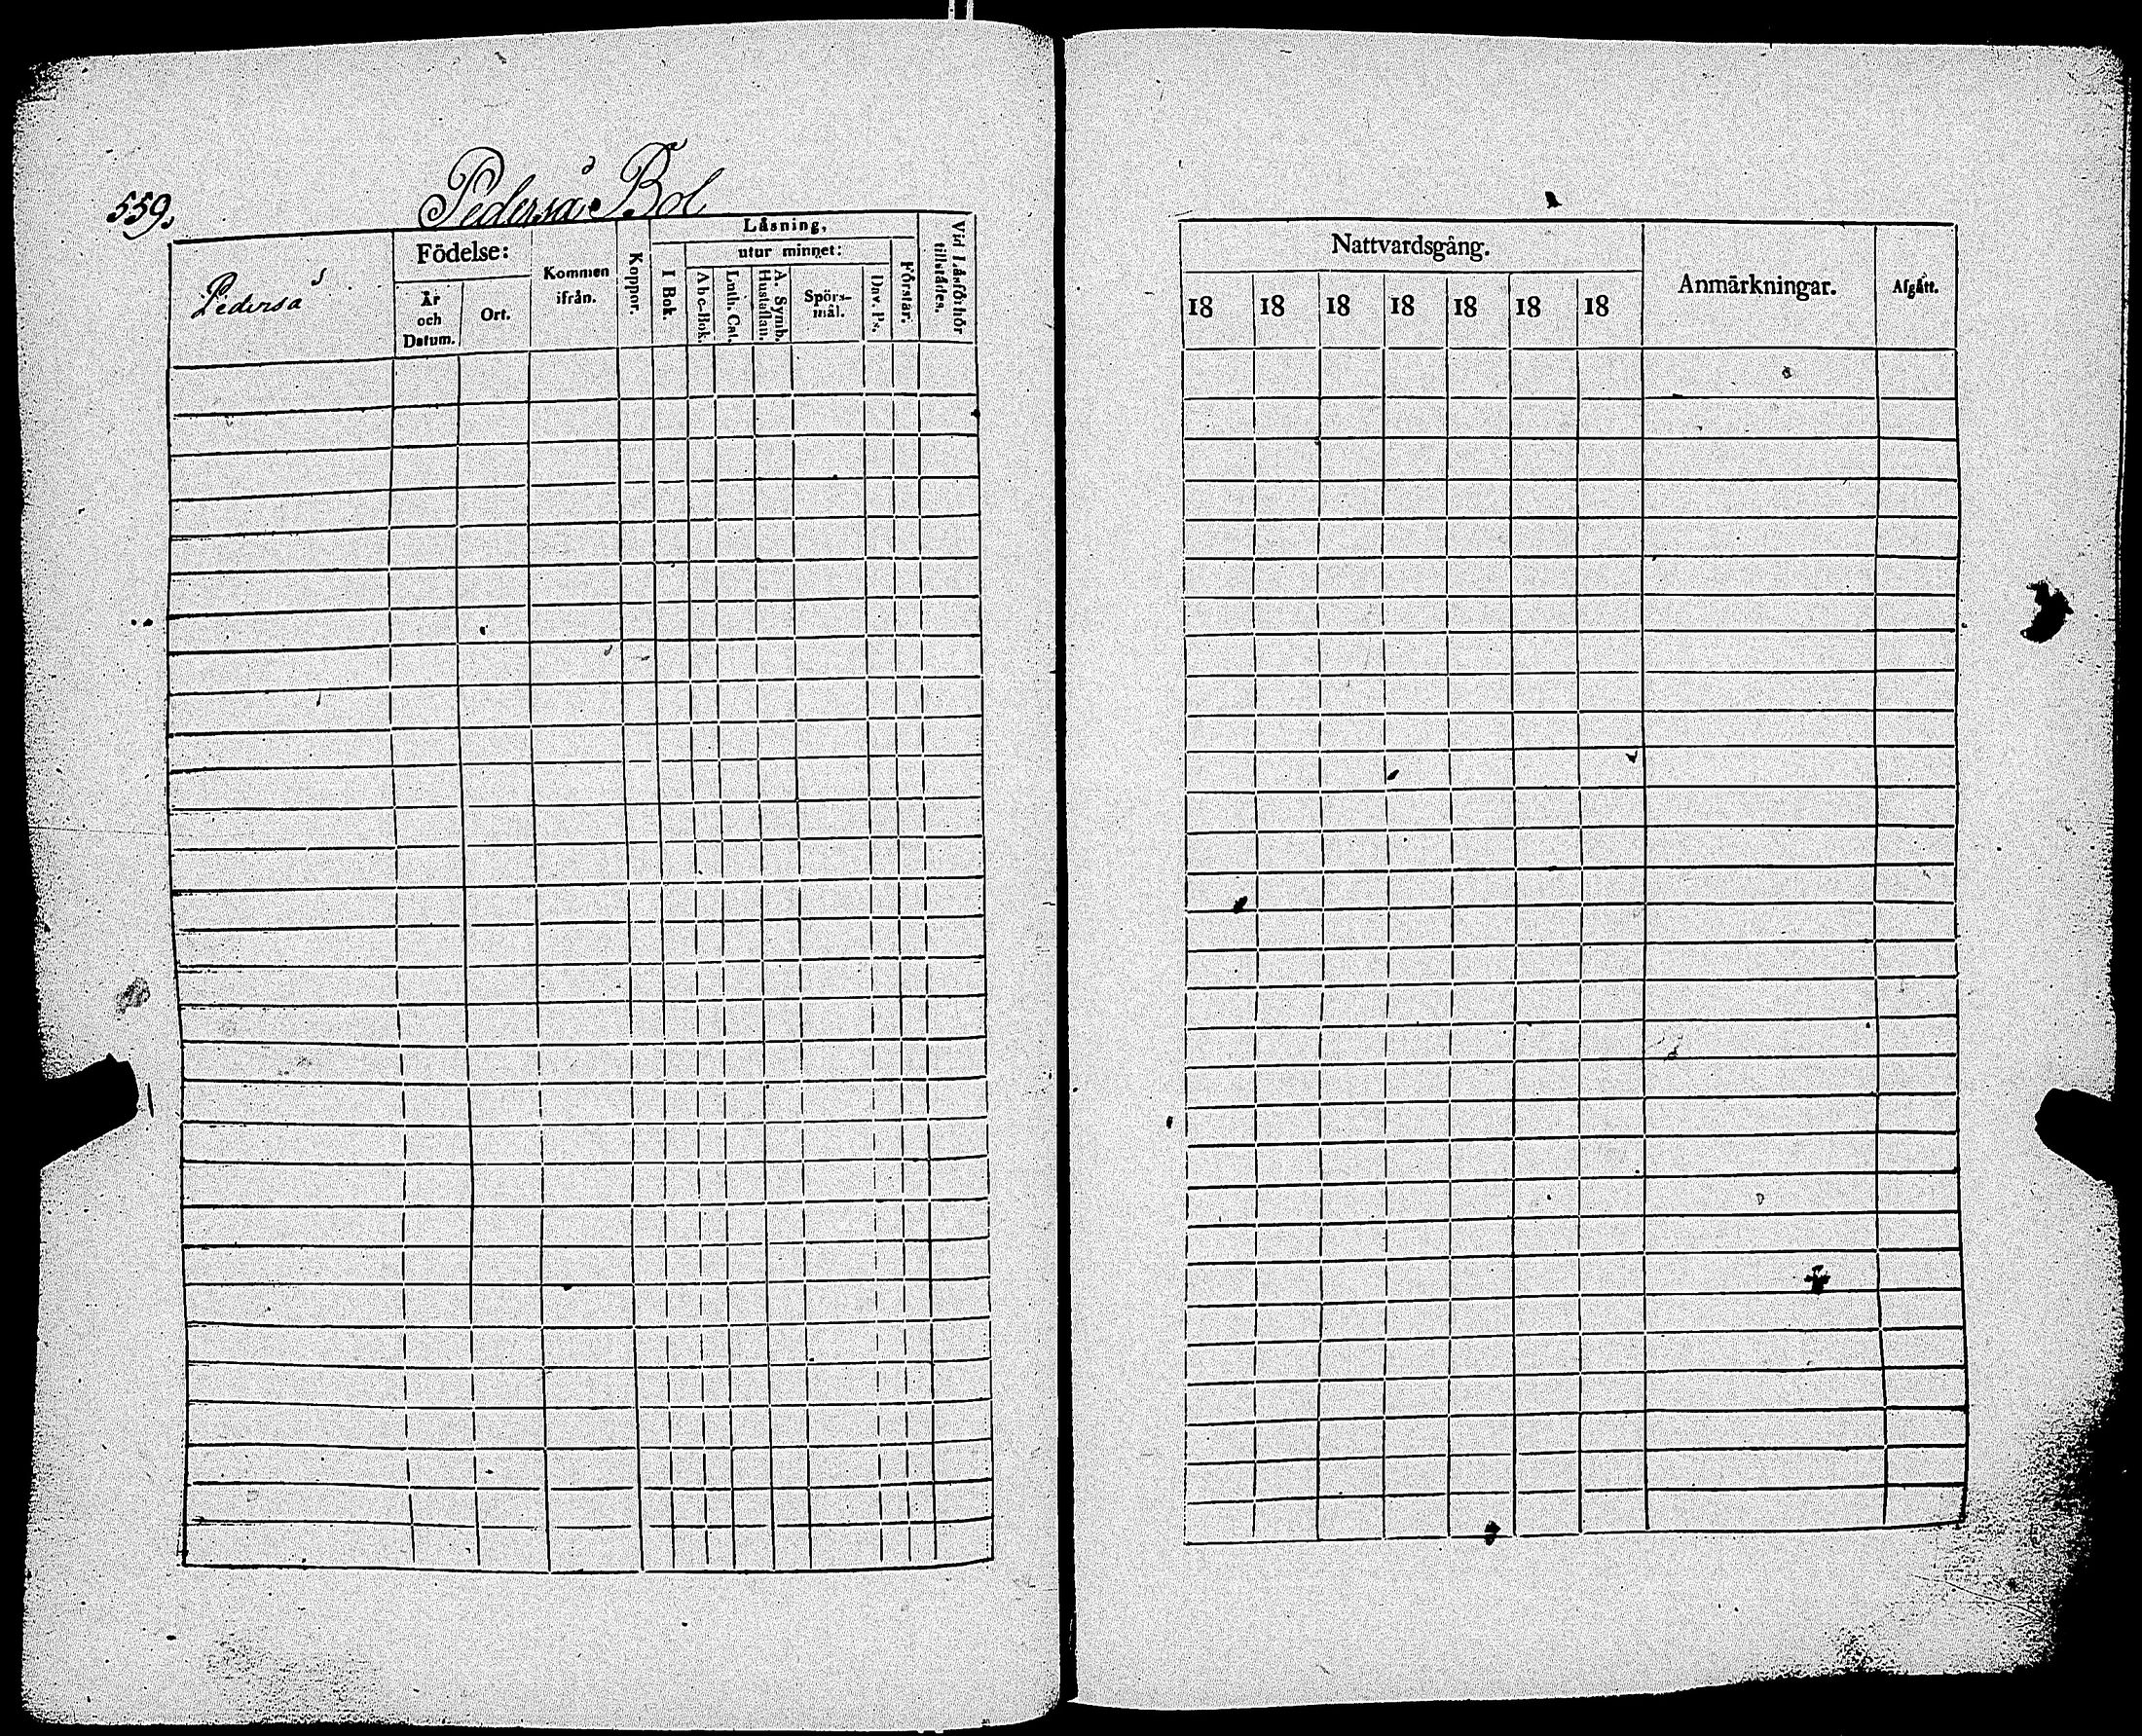 559.
Pederså Bol
Pederså
Födelse:
År
och
Datum.
Ort.
Kommen
ifrån.
Koppor.
Läsning,
I Bok.
utur minnet:
Abc-Bok.
Luth. Cat.
A. Symb.
Hustaflan.
Spörs-
mål.
Dav. Ps.
Förstår.
Vid Läsförhör
tillstädes.
Nattvardsgång.
18 18 18 18 18 18 18
Anmärkningar.
Afgått.